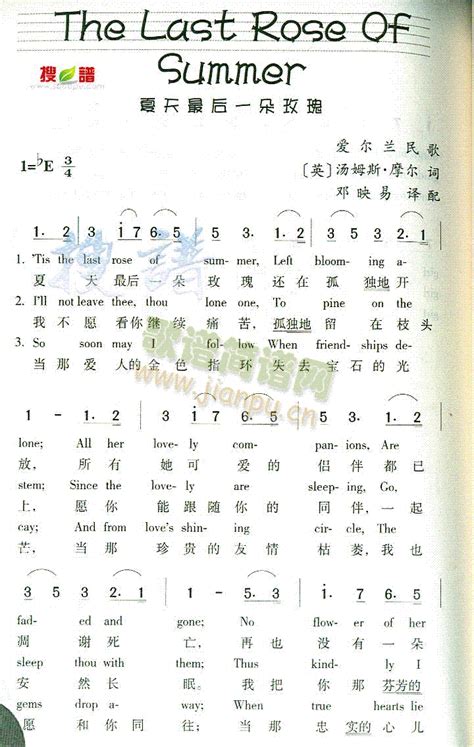 The Last Rose Of
Summer
搜谱
www.sooopu.com
夏天最后一朵玫瑰
爱尔兰民歌
1=♭E 3/4 〔英〕汤姆斯·摩尔 词
邓映易 译配
1. 2 3 i 7 6 5 5 3. 2 1 3. 2
1. 'Tis the last rose of sum- mer, Left bloom- ing a-
夏 天 最后 一 朵 玫 瑰 还在 孤 独地 开
2. I'll not leave thee, thou lone one! To pine on the
我 不 愿 看你 继 续 痛 苦, 孤独地 留 在 枝头
3. So soon may I fol- low When friendships de-
当 那 爱 人 的 金 色 指 环 失 去 宝石 的 光
歌谱简谱网
www.jianpu.cn
1 - 1. 2 3 i 7 6 5 5 3. 2 1. 2
lone; All her love- ly com- pan- ions, Are
放, 所 有 她 可 爱 的 侣 伴 都 已
stem; Since the love- ly are sleep- ing, Go,
上, 愿 你 能 跟随 随 你 的 同 伴, 一 起
cay; And from love's shin- ing cir- cle, The
芒, 当 那 珍 贵 的 友 情 枯 萎, 我 也
3 5 3 2. 1 1 - 5 i. 7 6 5 i
fad- ed and gone; No flow- er of her
凋 谢 死 亡, 再 也 没 有 一 朵
sleep thou with them; Thus kind- ly I
安 然 长 眠。 我 把 你 那 芬芳的
gems drop a- way; When true hearts lie
愿 和 你 同 往; 当 那 忠 实的 心 儿